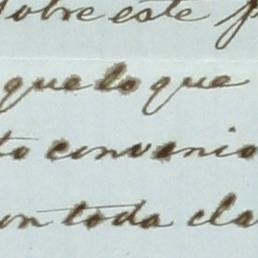 Sobre este p
que lo que
to convenio
on toda cla